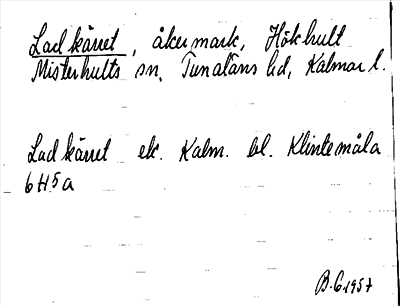 Ladkärret, åkermark, Hökhult
Misterhults sn, Tunaläns hd, Kalmar l.
Ladkärret ek. Kalm. bl. Klintemåla
6 H5a
B.G 1957